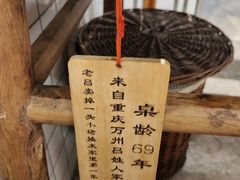 桌龄69年
来自重庆万州吕姓人家
老吕卖掉一头小猪